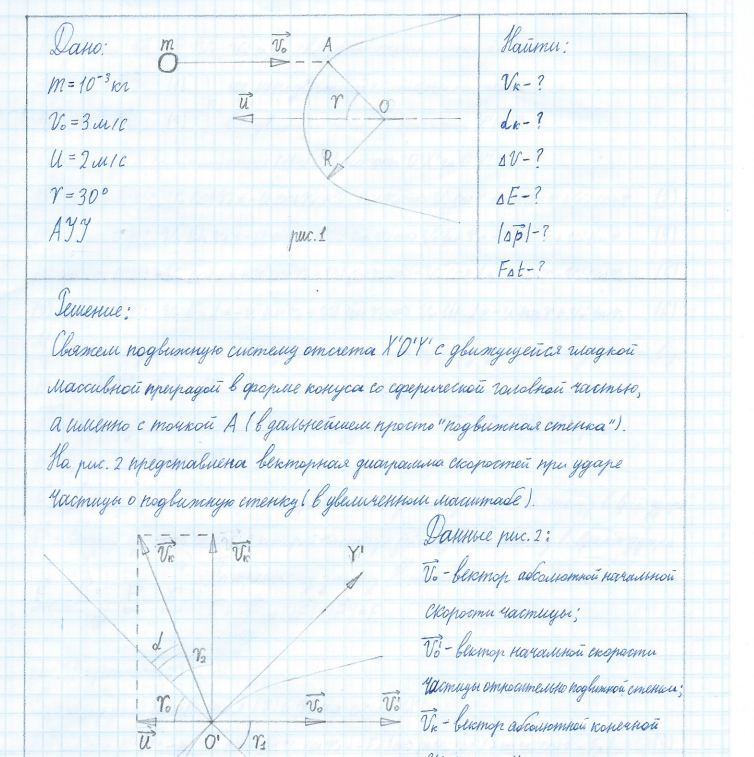 Дано:
m = 10⁻³ кг
V₀ = 3 м/с
U = 2 м/с
γ = 30°
АУУ
m
V₀
A
U
γ
O
R
рис. 1
Найти:
Vк - ?
αк - ?
ΔV - ?
ΔE - ?
|Δp| - ?
FΔt - ?
Решение:
Свяжем подвижную систему отсчета X'O'Y' с движущейся гладкой
массивной преградой в форме конуса со сферической головной частью,
а именно с точкой А (в дальнейшем просто "подвижная стенка").
На рис. 2 представлена векторная диаграмма скоростей при ударе
частицы о подвижную стенку (в увеличенном масштабе).
Vк
Vк'
Y'
α
γ₂
γ₀
V₀
V₀'
U
O'
γ₁
Данные рис. 2:
V₀ - вектор абсолютной начальной
скорости частицы;
V₀' - вектор начальной скорости
частицы относительно подвижной стенки;
Vк - вектор абсолютной конечной